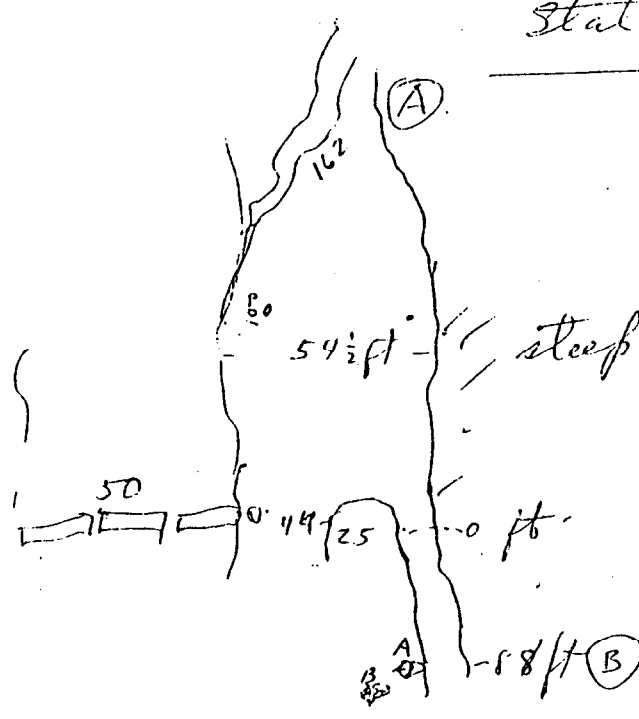 Stat
A
162
54 ½ ft
steep
50
49
25
0 ft.
A
B
88 ft B